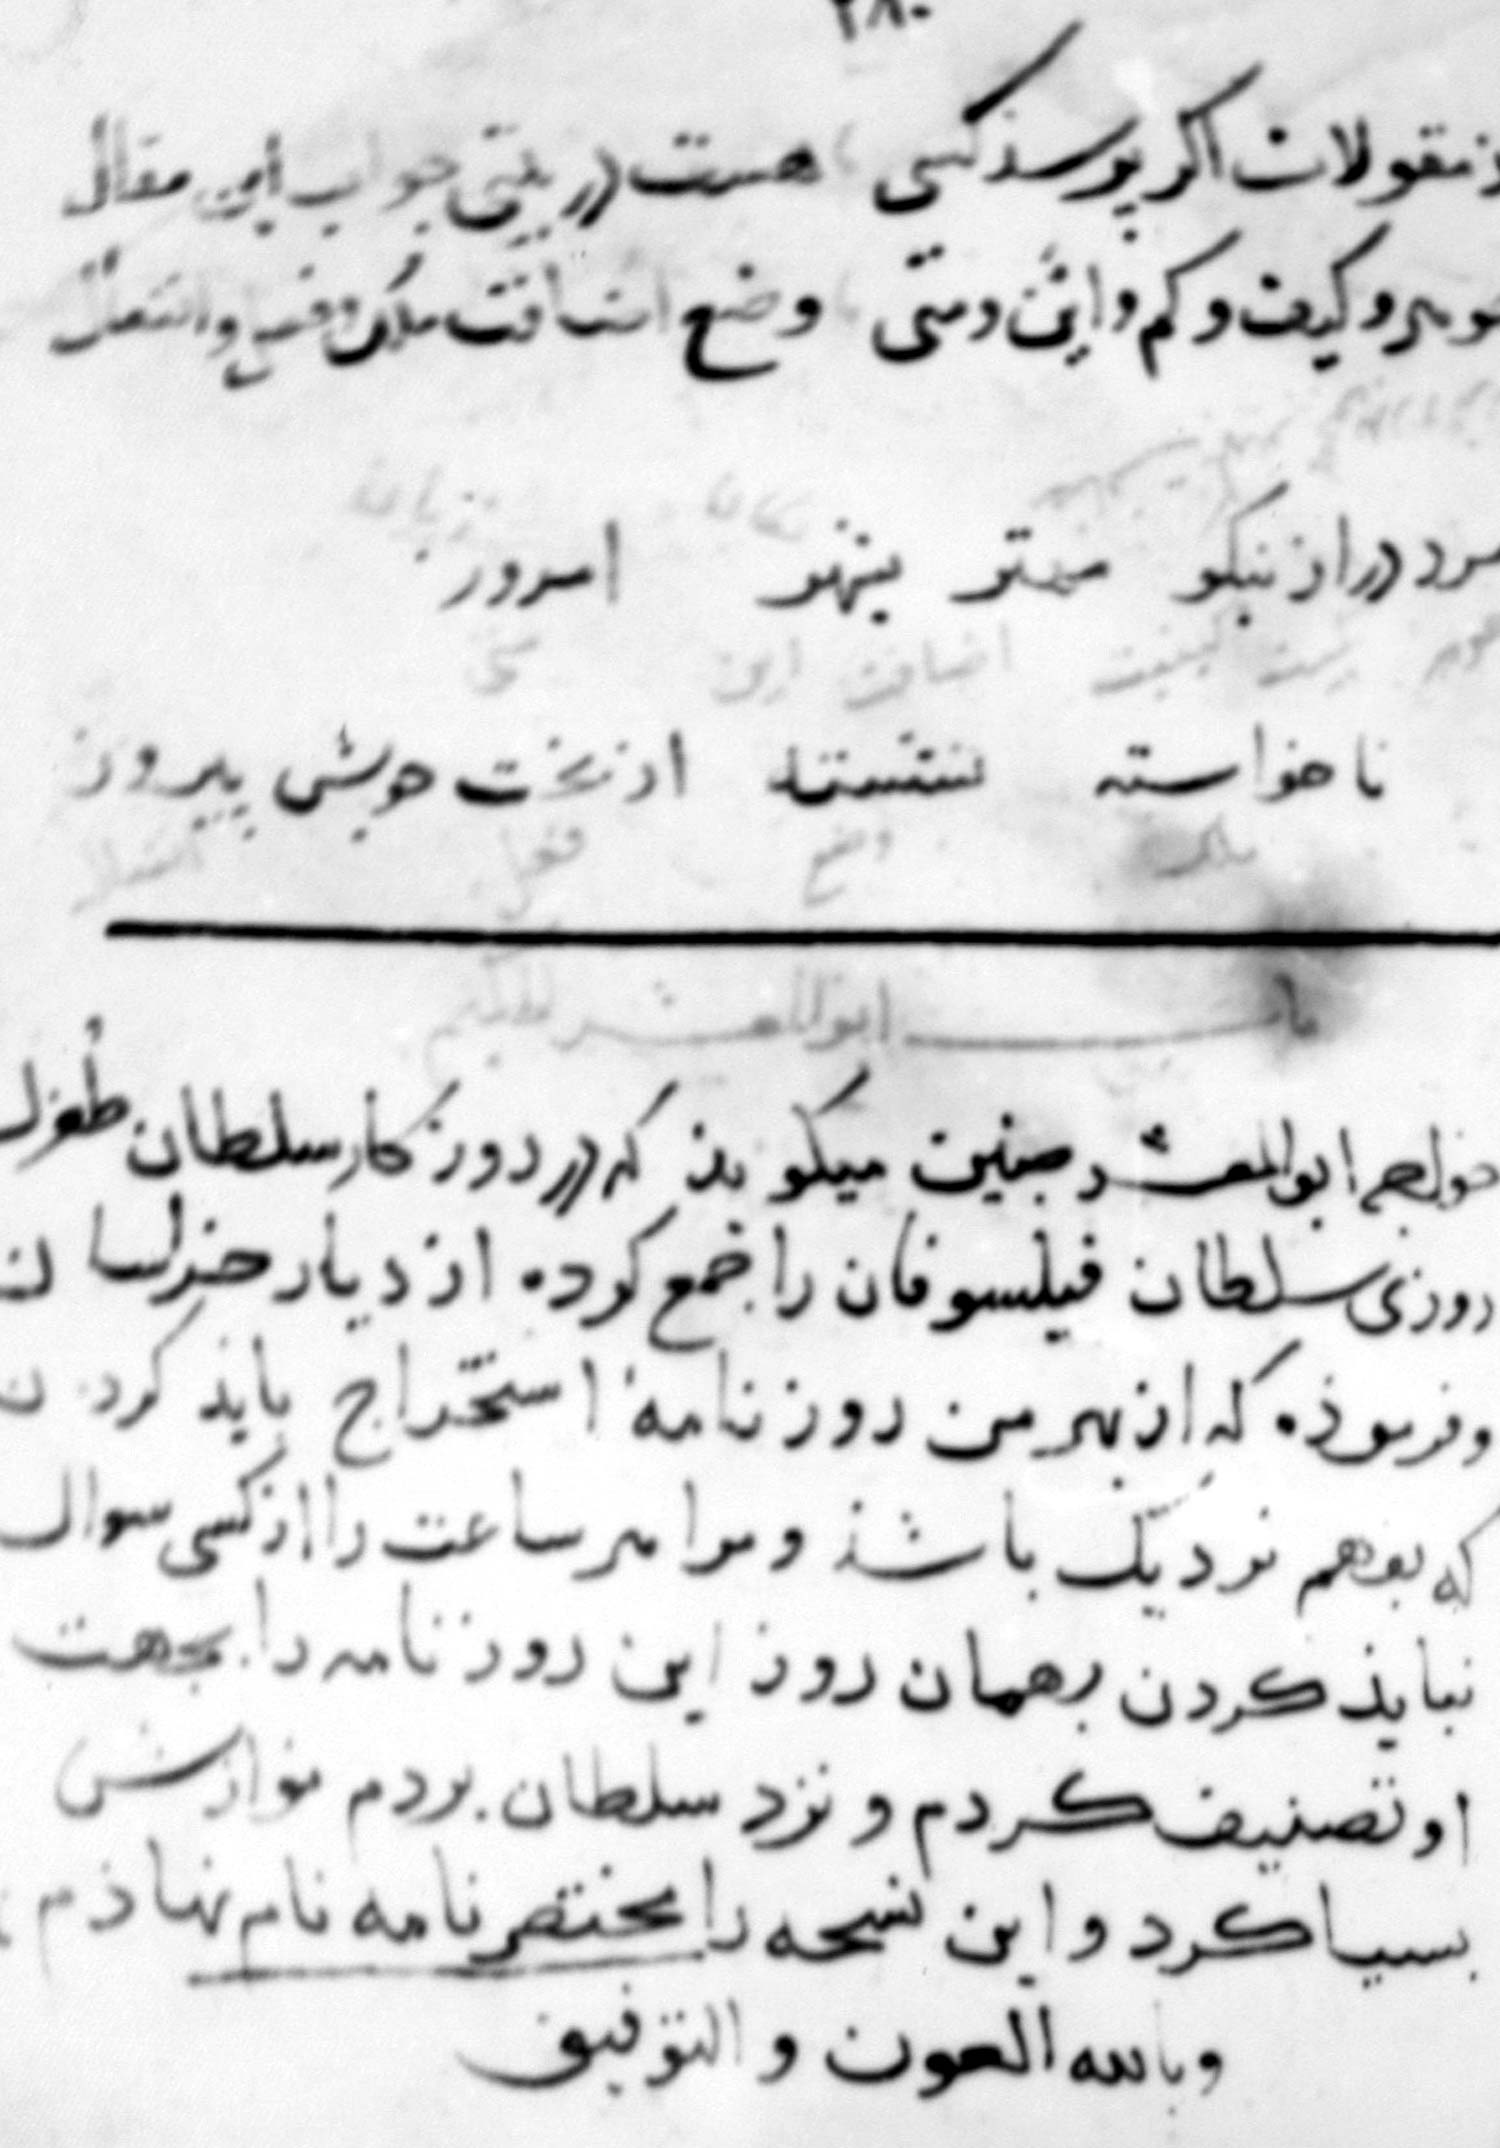 ۲۸۰
ز مقولات اکر بپرسذ کسی هست در بیتی جواب این مقال
جوهر و کیف و کم و این و متی وضع اضافت ملک و فعل و انفعال
مرد دراز نیکو مهتر بشهر امروز
کیفیت اضافت این متی
ناخواسته نشسته از بخت خویش پیروز
ملک وضع فعل انفعال
ابوالمعشر
ابوالمعشر چنین میکویذ که در روزکار سلطان طُغرل
روزی سلطان فیلسوفان را جمع کرده از دیار خراسان
وفرموذه که از بهر من روزنامهٔ استخراج بایذ کردن
که بفهم نزدیک باشذ و مرا هر ساعت را از کسی سوال
نبایذ کردن بهمان روز این روزنامه را بجهت
او تصنیف کردم و نزد سلطان بردم نوازش
بسیا کرد و این نسخه را مختصر نامه نام نهاذم
وبالله العون و التوفیق